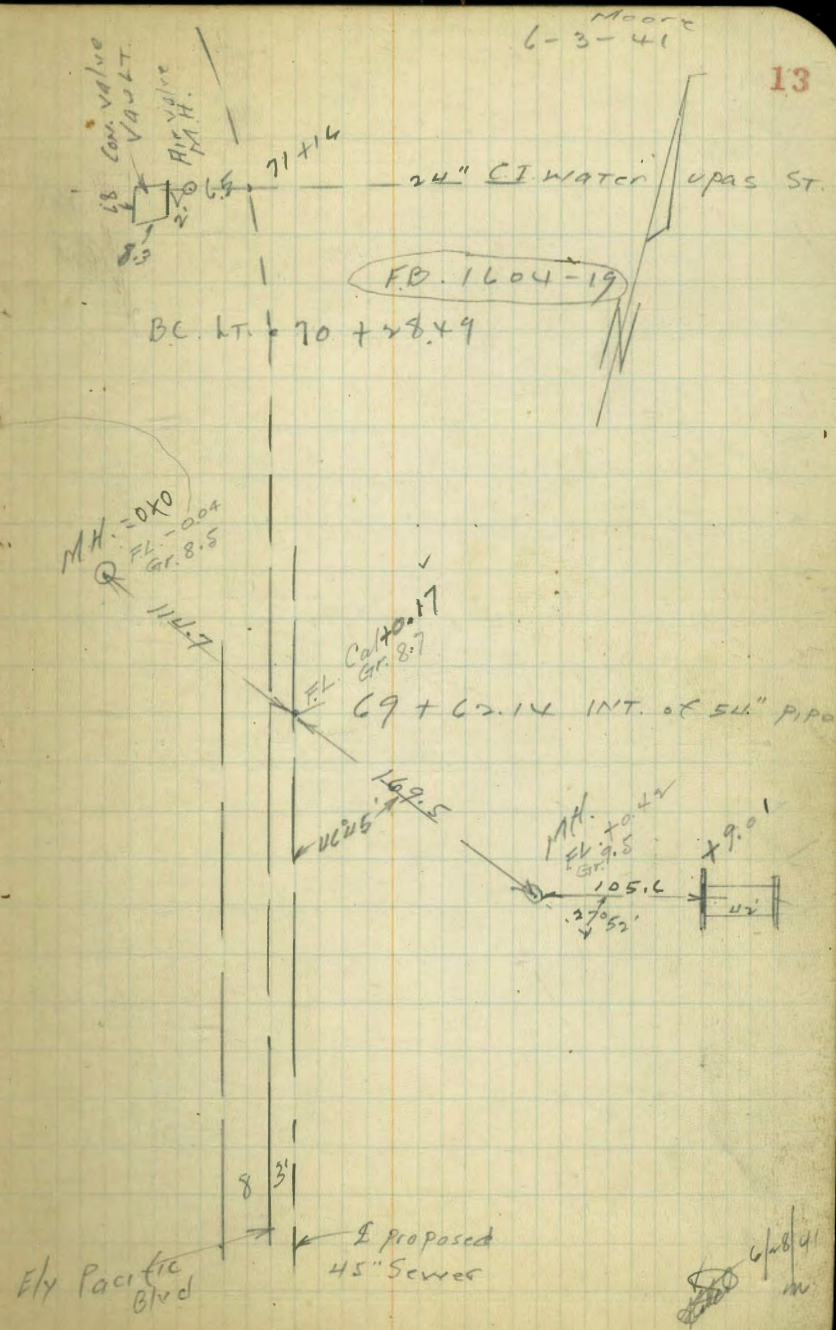 Moore
6-3-41
13
Con. Valve
VAULT.
Air Valve
M.H.
6.8
8.3
2.
6.5
71+16
24" CI Water
Upas ST.
F.B. 1604-19
B.C. LT. 70 + 28.49
M.H. = 0+0
FL. - 0.04
Gr. 8.5
114.7
FL. Cal +0.17
Gr. 8.7
69 + 62.14 INT. of 54" Pipe
169.5
46°45'
M.H.
FL. +0.42
Gr. 9.5
x 9.0'
105.6
27°52'
42'
8
3'
℄ proposed
45" Sewer
Ely Pacific
Blvd
6/28/41